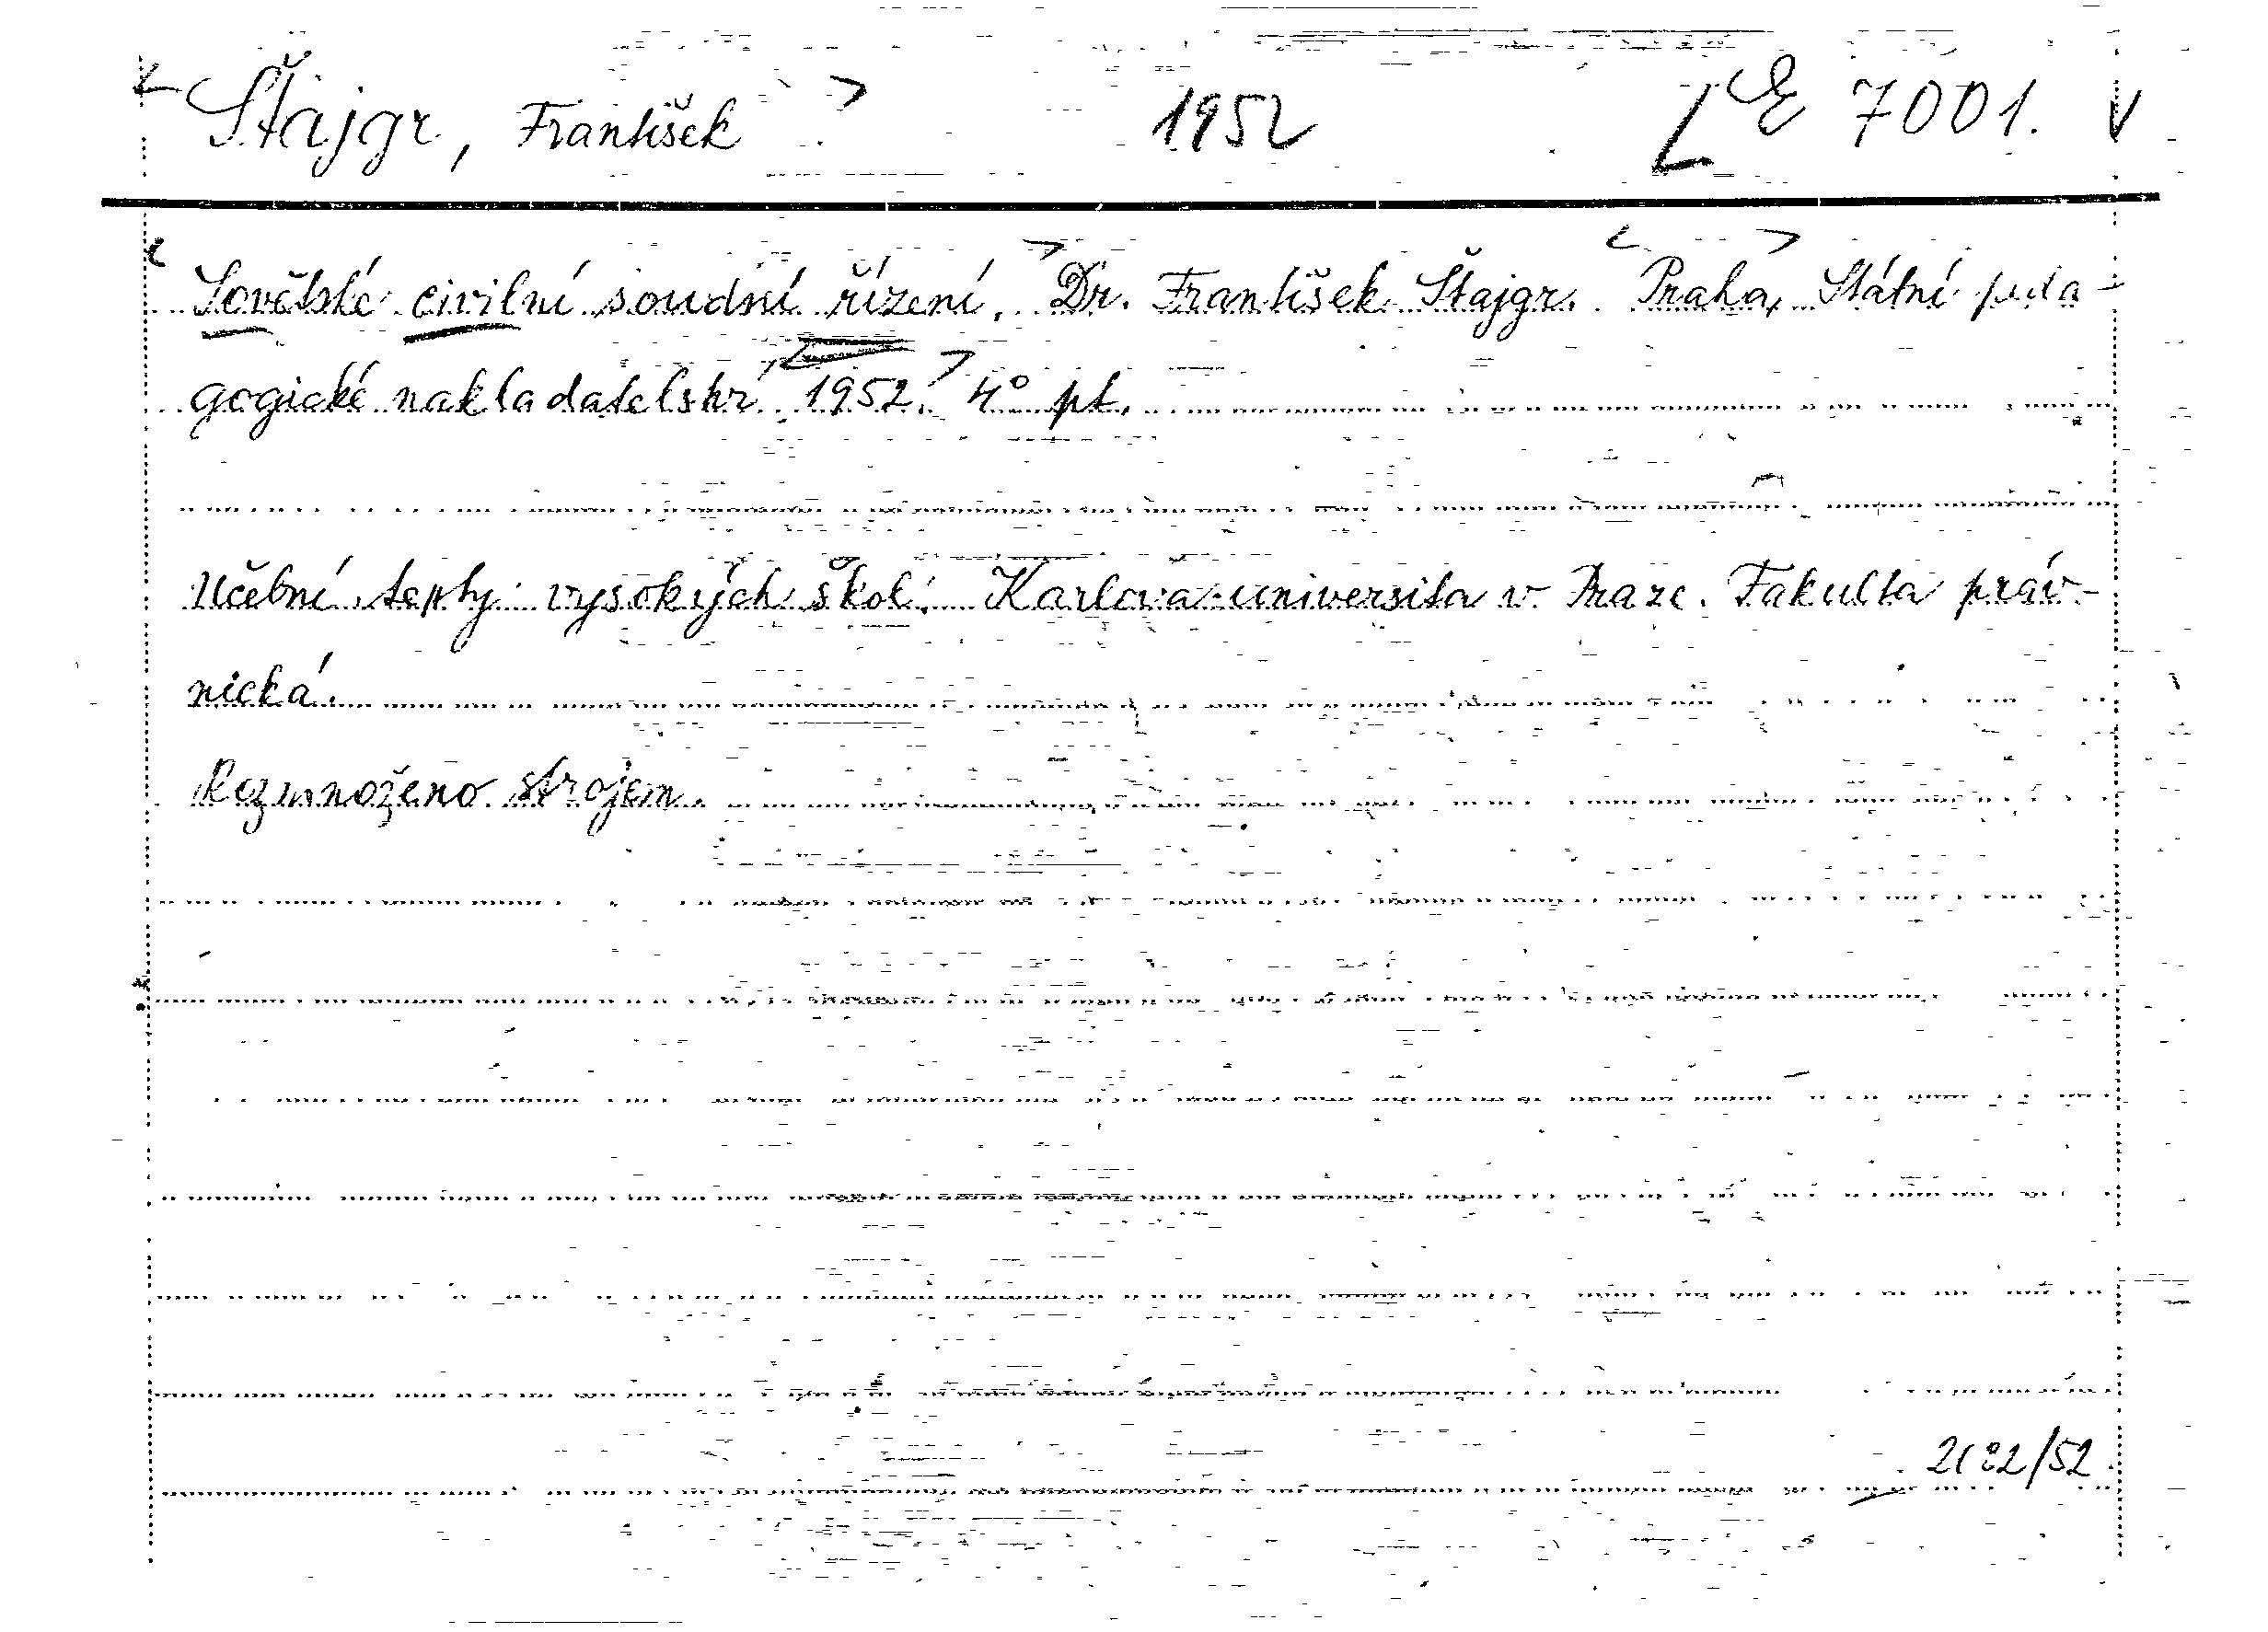 Štajgr, František 1952 E 7001.
Sovětské civilní soudní řízení. Dr. František Štajgr. Praha, Státní peda-
gogické nakladatelství 1952. 4° pt.
Učební texty vysokých škol. Karlova universita v Praze. Fakulta práv-
nická.
Rozmnoženo strojem.
/52